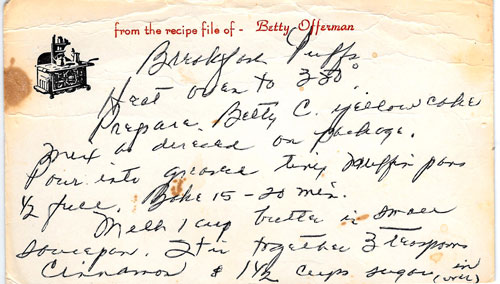 from the recipe file of - Betty Offerman
Breakfast Puffs
Heat oven to 350°.
Prepare Betty C. yellow cake
mix as directed on package.
Pour into greased tiny muffin pans
1/2 full. Bake 15-20 min.
Melt 1 cup butter in small
saucepan. Stir together 3 teaspoons
Cinnamon & 1 1/2 cups sugar in
(over)